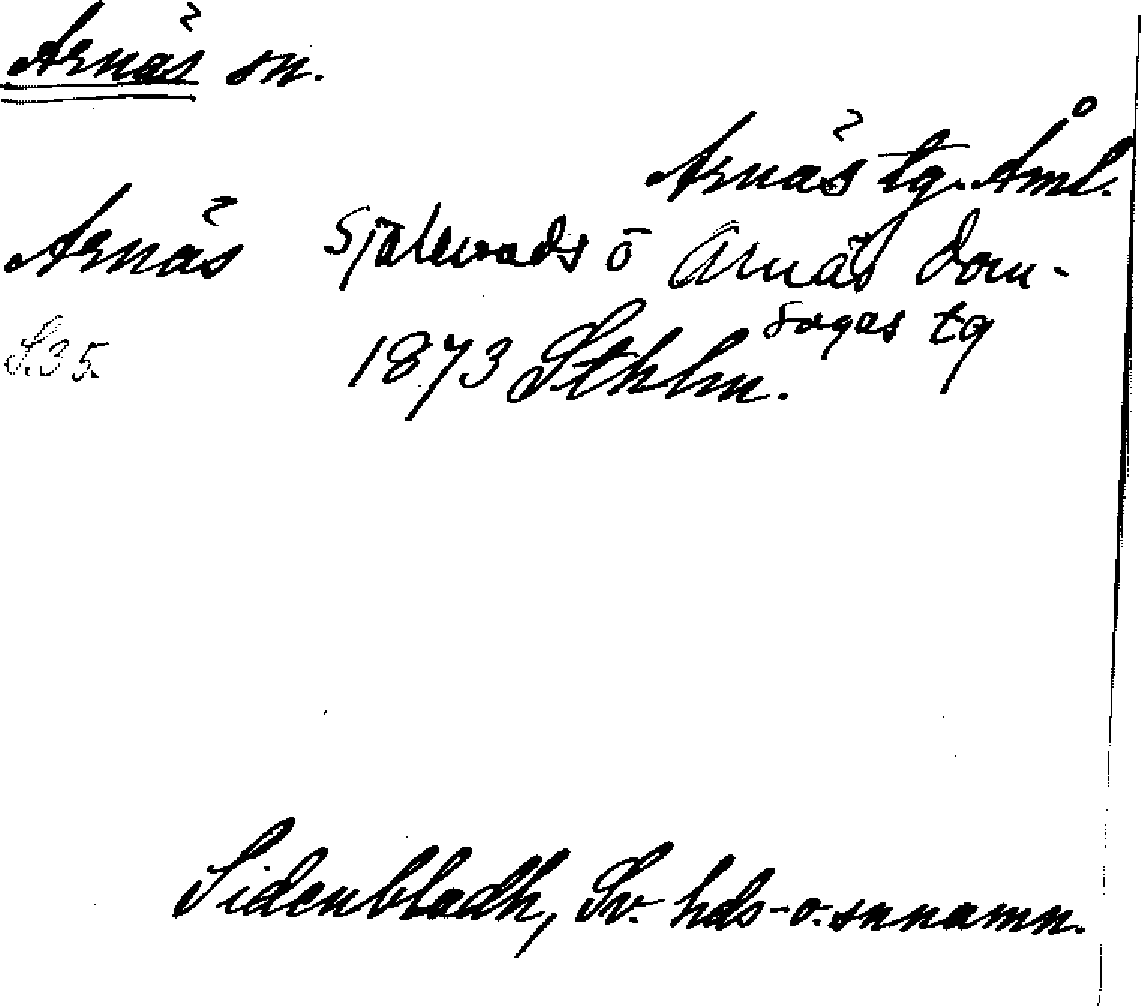 Arnäs sn.
Arnäs tg. Åml.
Arnäs Själevads ö Arnäs dom-
sagas tg
S.35. 1873 Sthlm.
Sidenbladh, Sv. hds- o. snnamn.